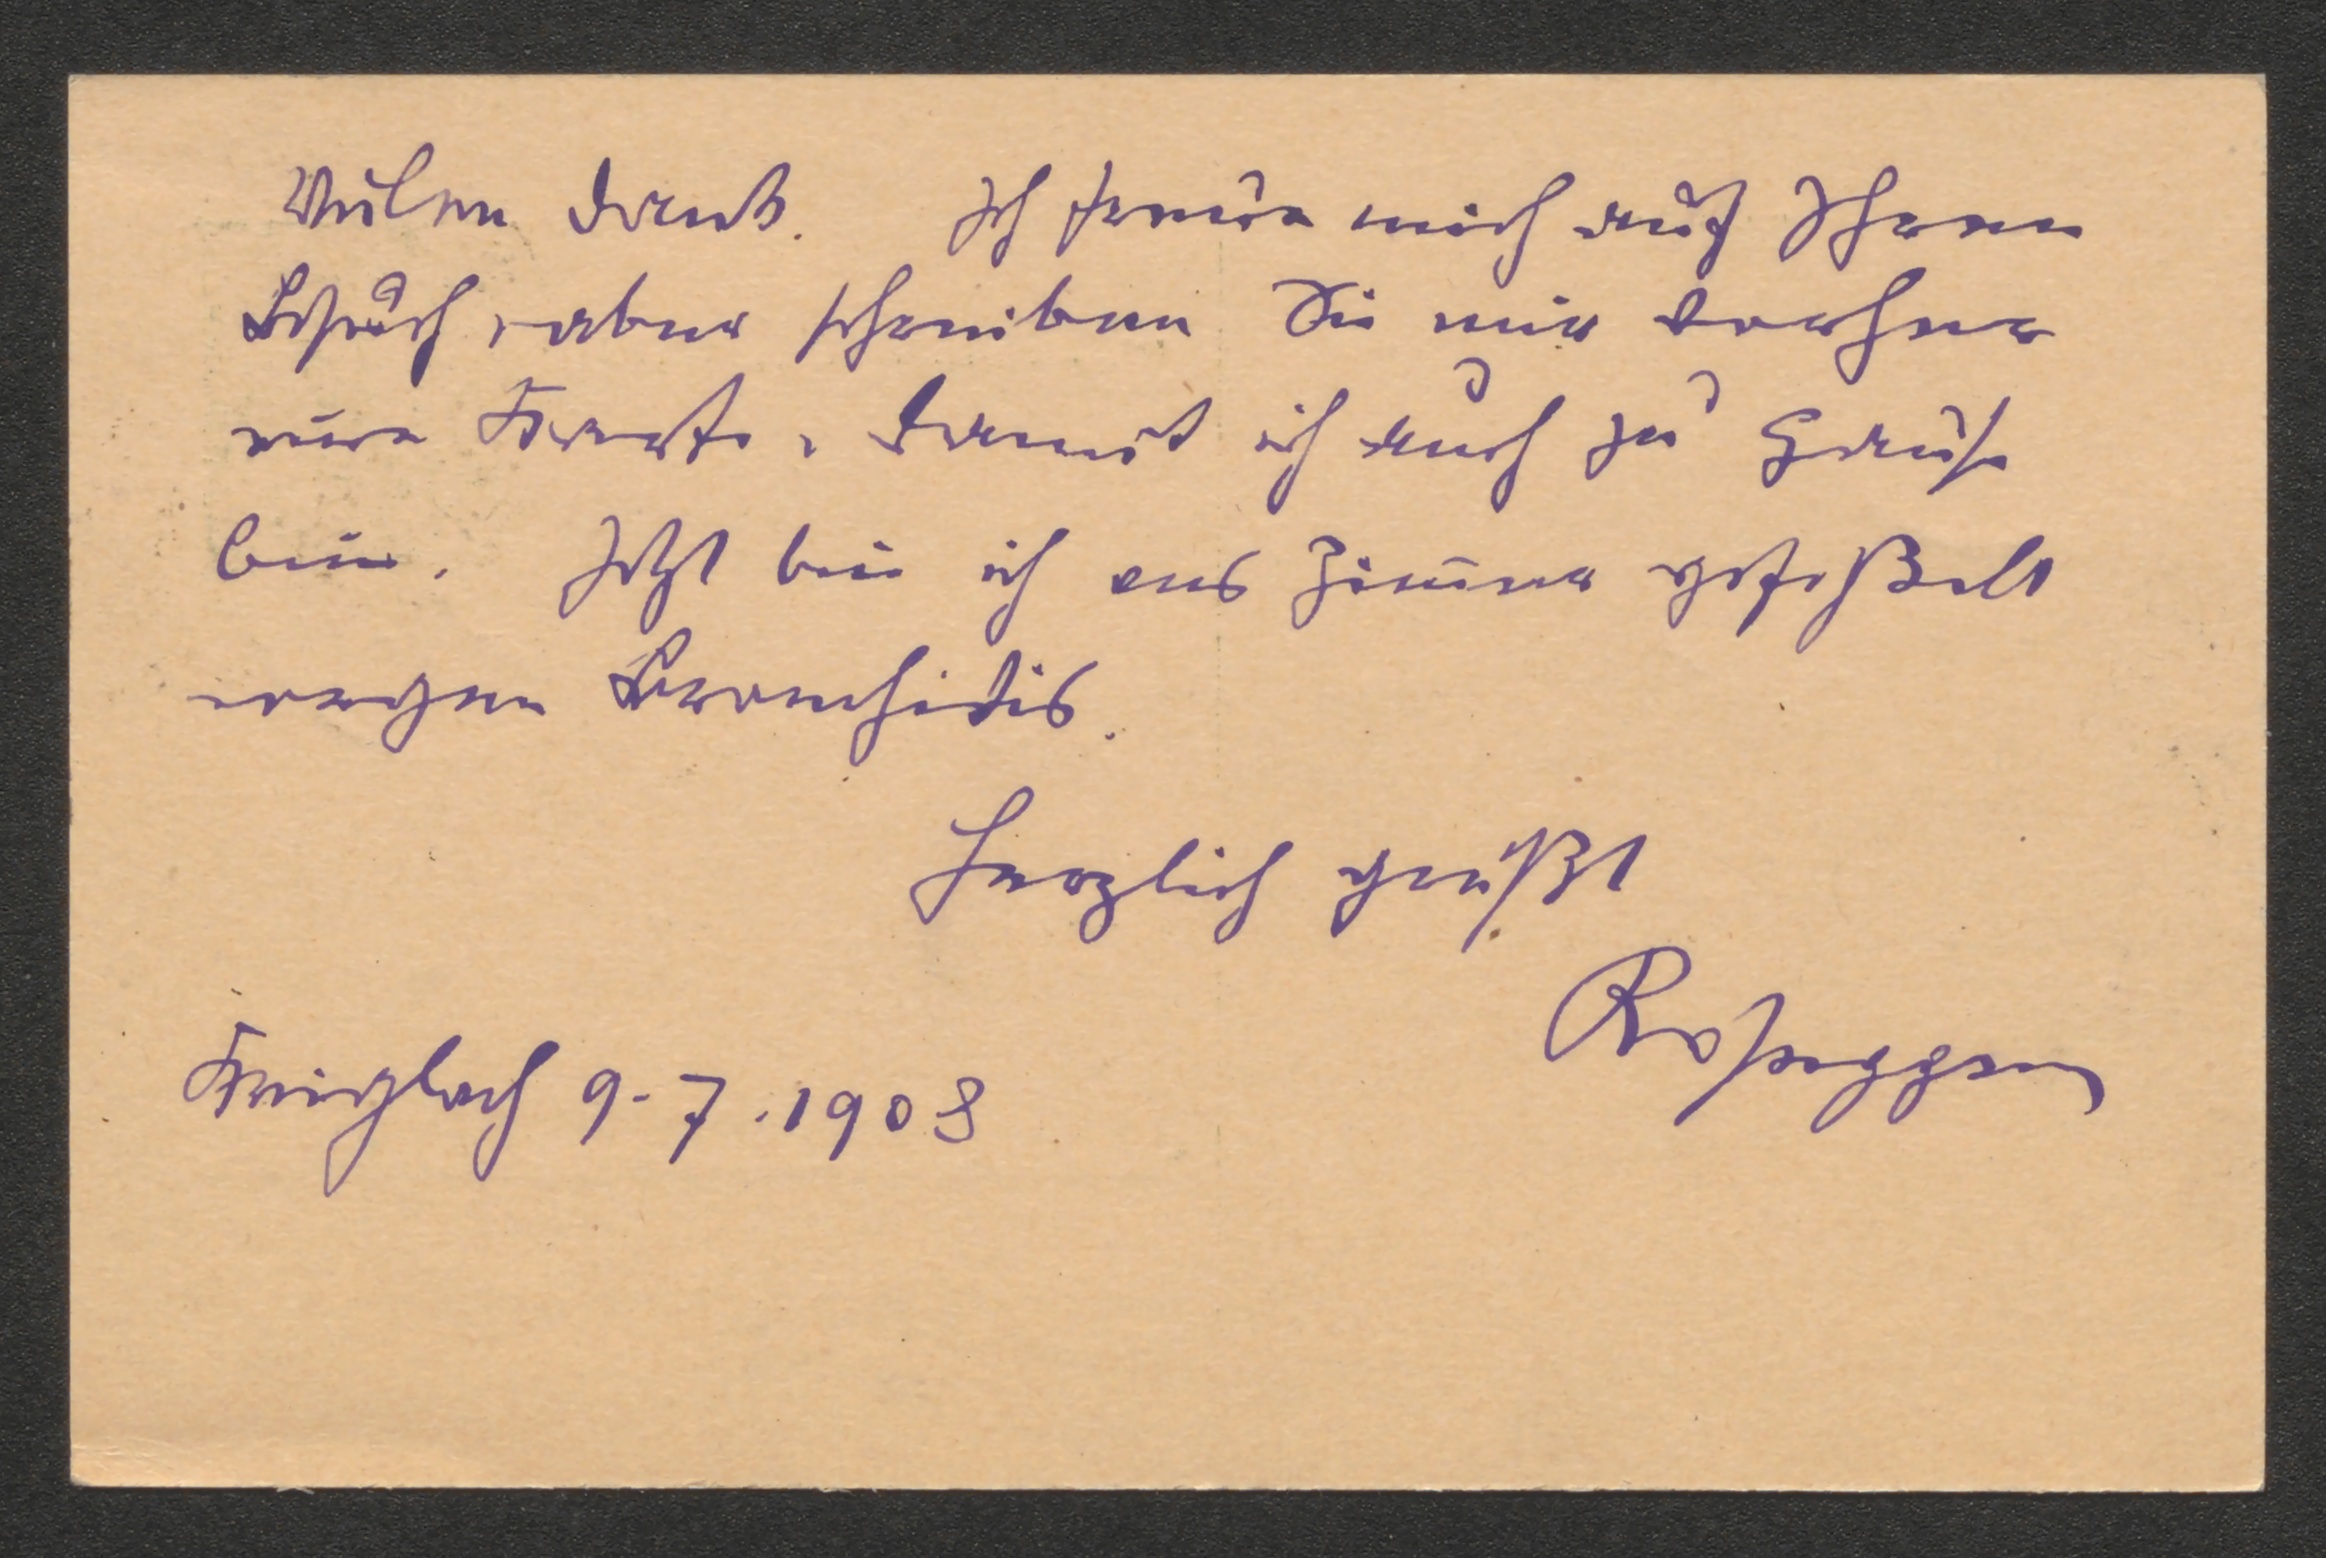 Vielen Dank. Ich freue mich auf Ihren
Besuch, aber schreiben Sie mir vorher
eine Karte, damit ich auch zu Hause
bin. Jetzt bin ich ans Zimmer gefeßelt
wegen Bronchitis.
Herzlich grüßt
Rosegger
Krieglach 9.7.1908